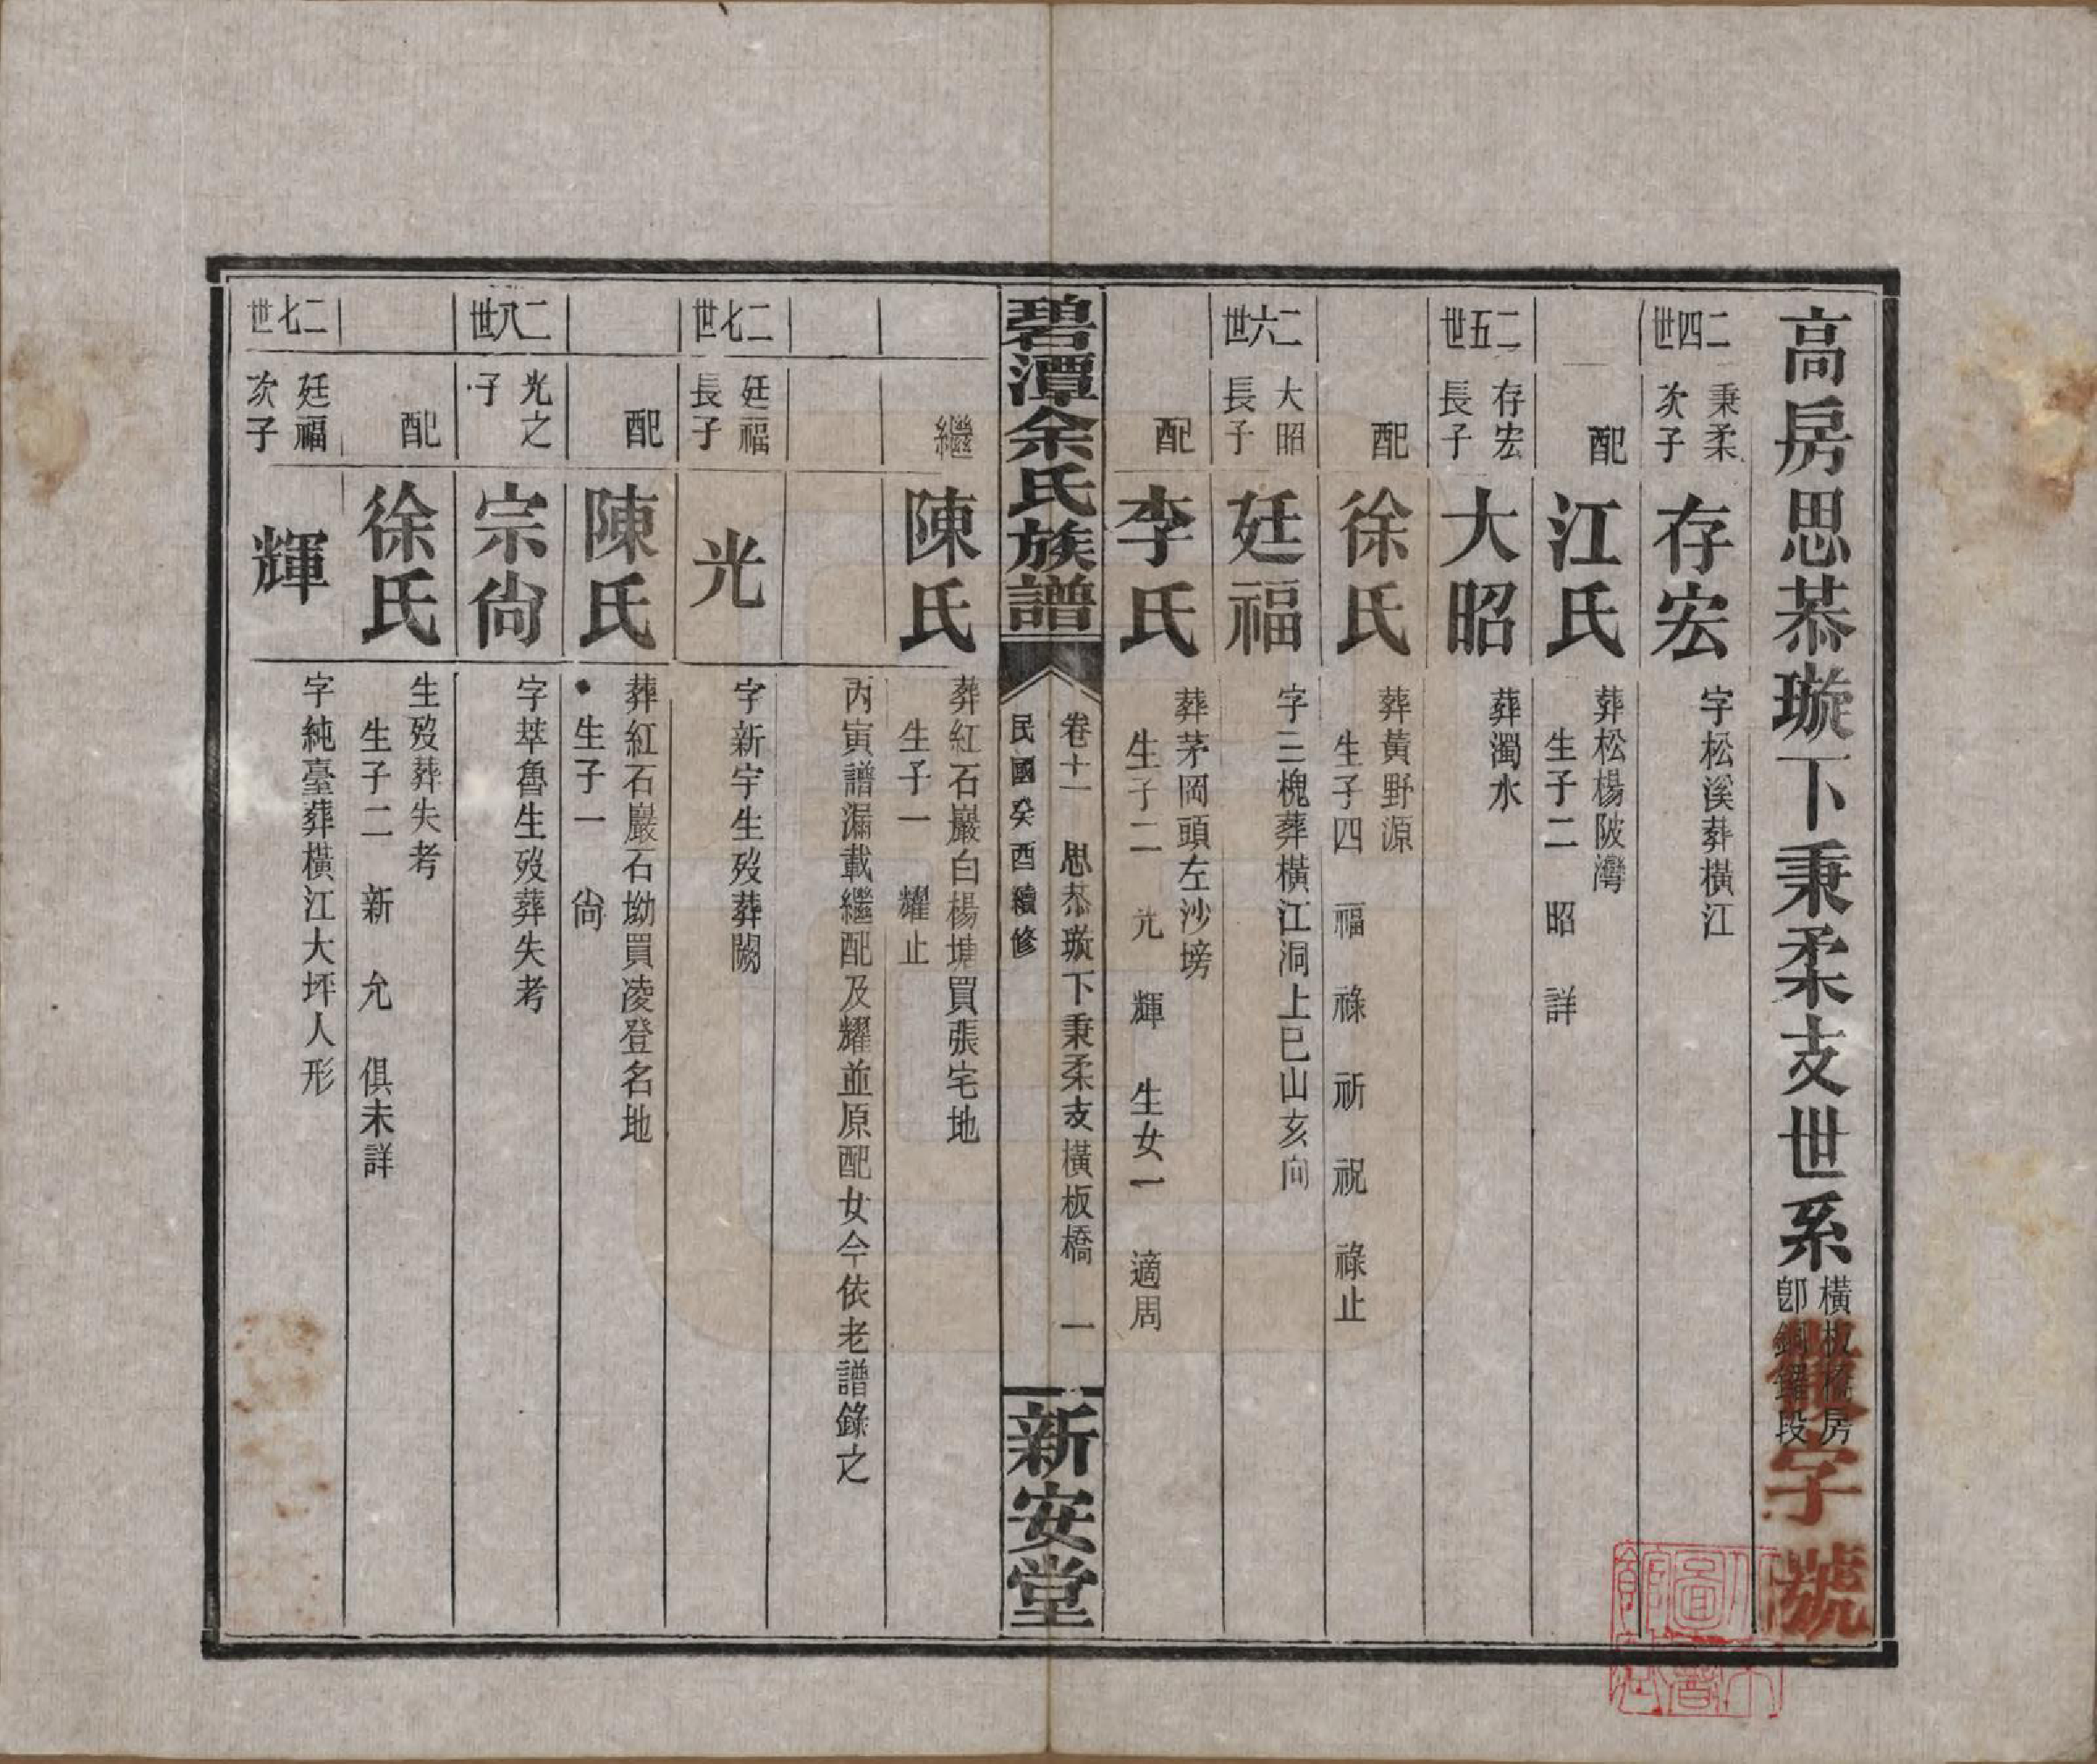 高房思恭璇下秉柔支世系
橫板橋房
卽銅鑼段
字號
二四世
秉柔
次子
存宏
字松溪葬橫江
配
江氏
葬松楊陂灣
生子二 昭 詳
二五世
存宏
長子
大昭
葬濁水
配
徐氏
葬黃野源
生子四 福 祿 祈 祝 祿止
二六世
大昭
長子
廷福
字三槐葬橫江洞上巳山亥向
配
李氏
葬茅岡頭左沙塝
生子二 光 輝 生女一 適周
碧潭余氏族譜
卷十一 思恭璇下秉柔支橫板橋 一
民國癸酉續修
新安堂
繼
陳氏
葬紅石巖白楊塘買張宅地
生子一 耀止
丙寅譜漏載繼配及耀並原配女今依老譜錄之
二七世
廷福
長子
光
字新宇生歿葬闕
配
陳氏
葬紅石巖石坳買凌登名地
生子一 尙
二八世
光之
子
宗尙
字萃魯生歿葬失考
配
徐氏
生歿葬失考
生子二 新 允 俱未詳
二七世
廷福
次子
輝
字純臺葬橫江大坪人形